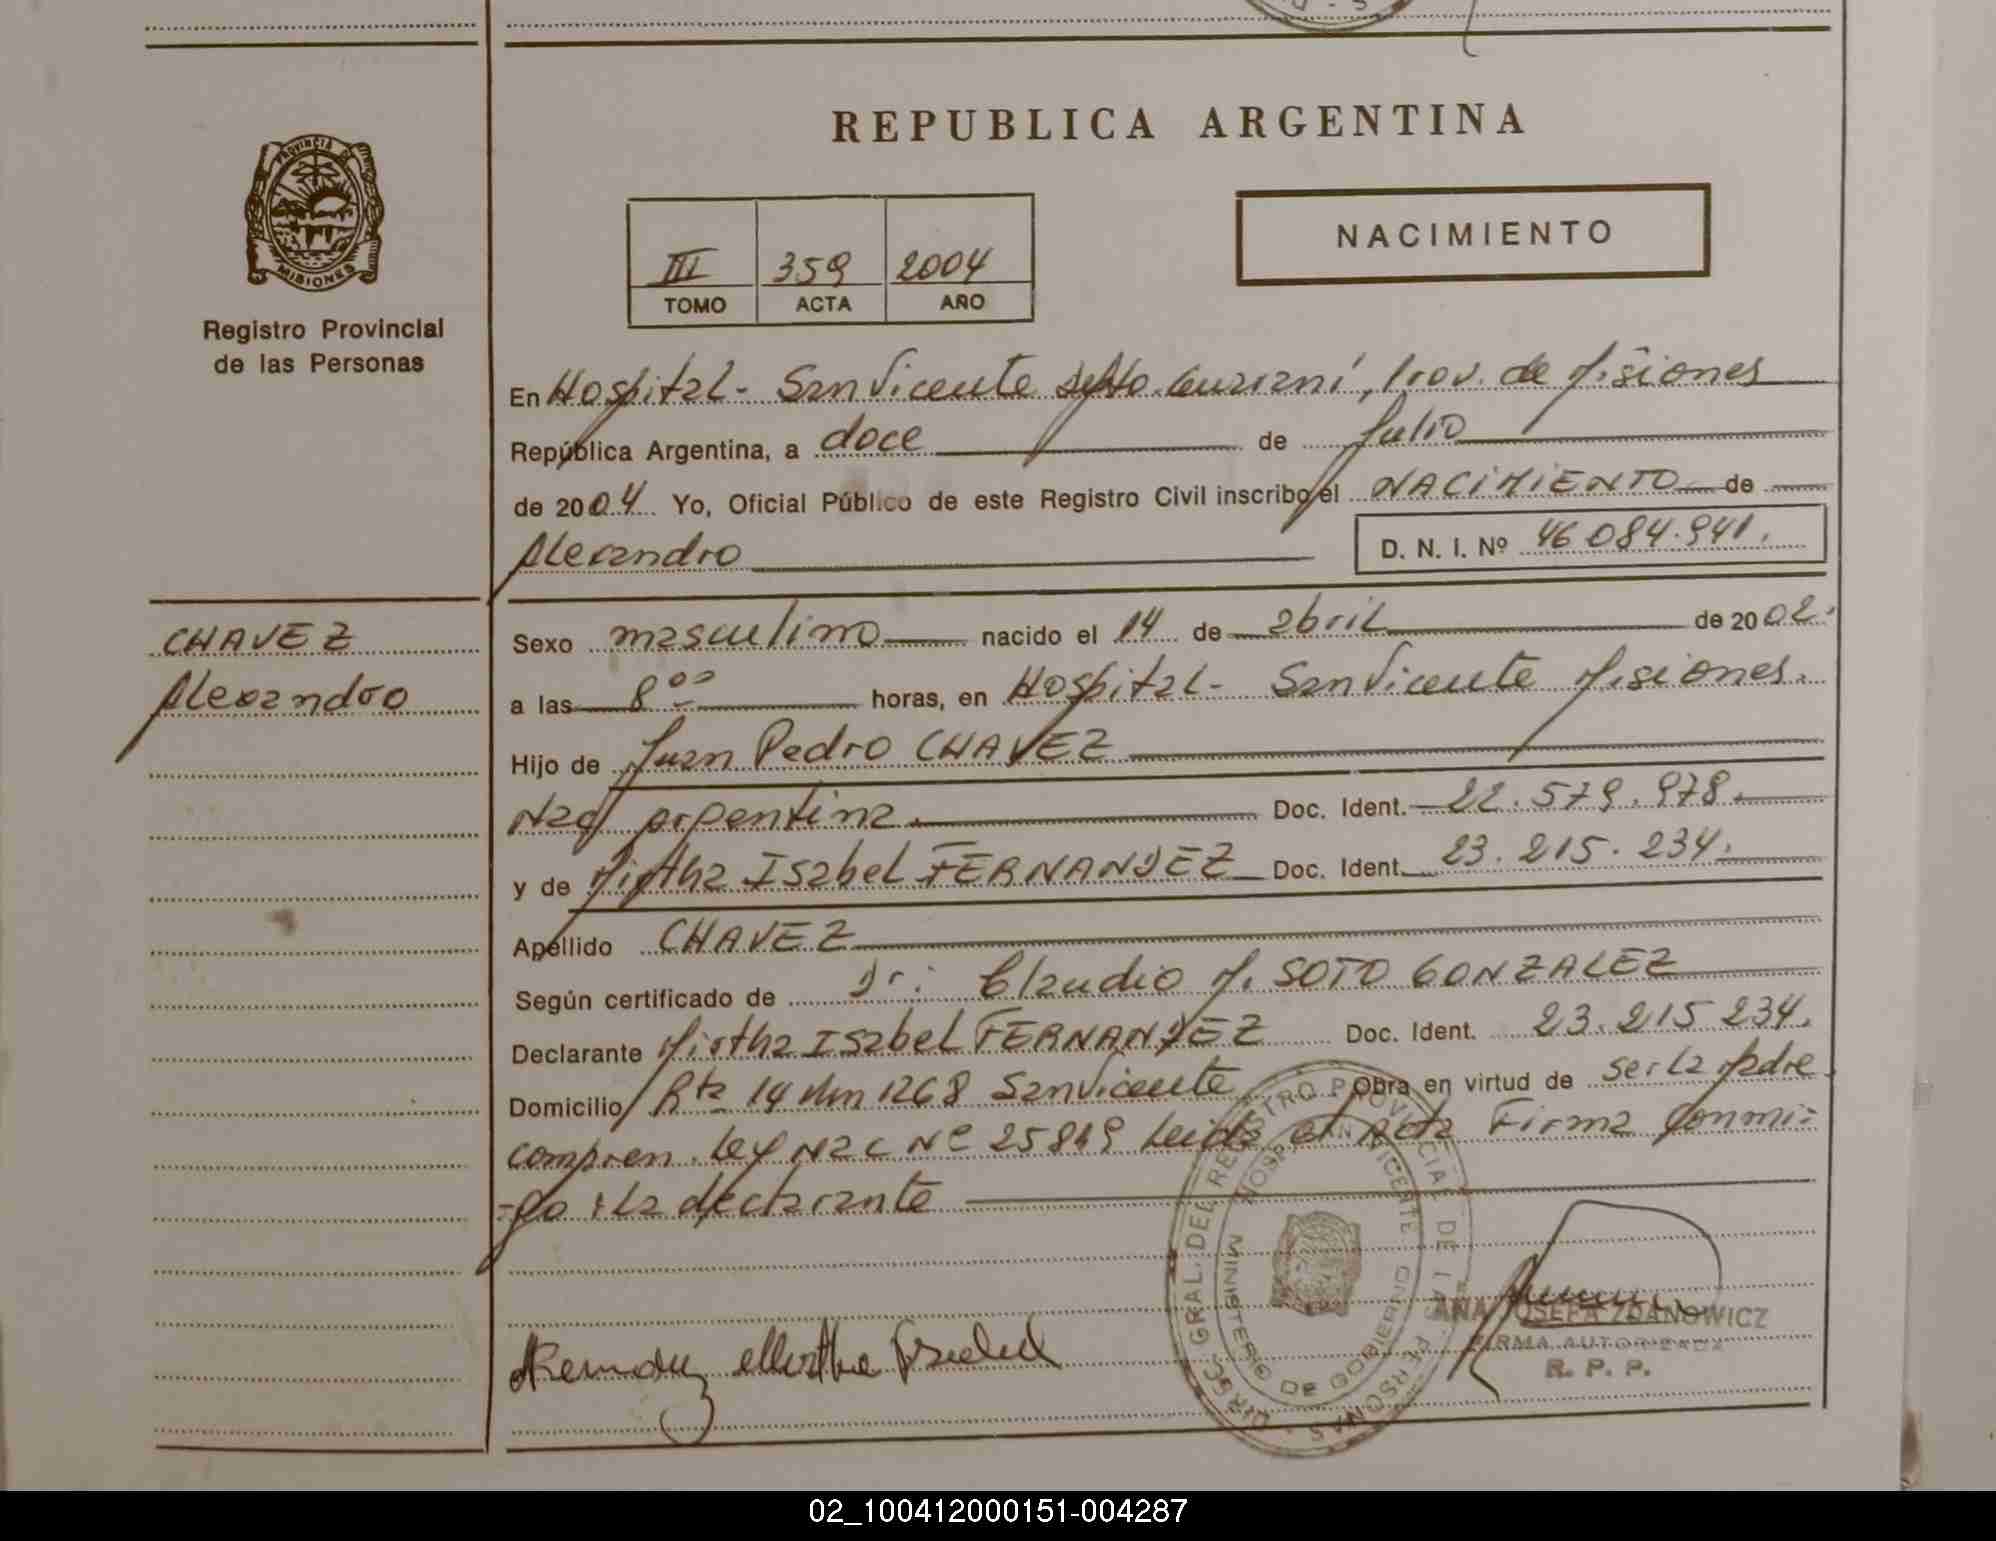 REPUBLICA ARGENTINA
PROVINCIA DE
MISIONES
Registro Provincial
de las Personas
III 359 2004
TOMO ACTA AÑO
NACIMIENTO
En Hospital - San Vicente Depto. Guaraní, Prov. de Misiones
República Argentina, a doce de Julio
de 2004 Yo, Oficial Público de este Registro Civil inscribo el NACIMIENTO de
Alexandro
D. N. I. Nº 46.084.941.
CHAVEZ
Alexandro
Sexo masculino nacido el 14 de abril de 2002.
a las 8⁰⁰ horas, en Hospital - San Vicente Misiones.
Hijo de Juan Pedro CHAVEZ
Nac argentina. Doc. Ident. 22.579.978.
y de Mirtha Isabel FERNANDEZ Doc. Ident. 23.215.234.
Apellido CHAVEZ
Según certificado de Dr. Claudio M. SOTO GONZALEZ
Declarante Mirtha Isabel FERNANDEZ Doc. Ident. 23.215.234.
Domicilio Rta 14 Km 1268 San Vicente Obra en virtud de ser la Madre
compren. Ley Nac Nº 25819 Leida el Acta Firma conmi=
=go : La declarante
Mirtha Isabel
DIRECC. GRAL. DEL REGISTRO PROVINCIAL DE LAS PERSONAS
HOSPITAL SAN VICENTE
MINISTERIO DE GOBIERNO
ANA JOSEFA ZDANOWICZ
FIRMA AUTORIZADA
R. P. P.
02_100412000151-004287